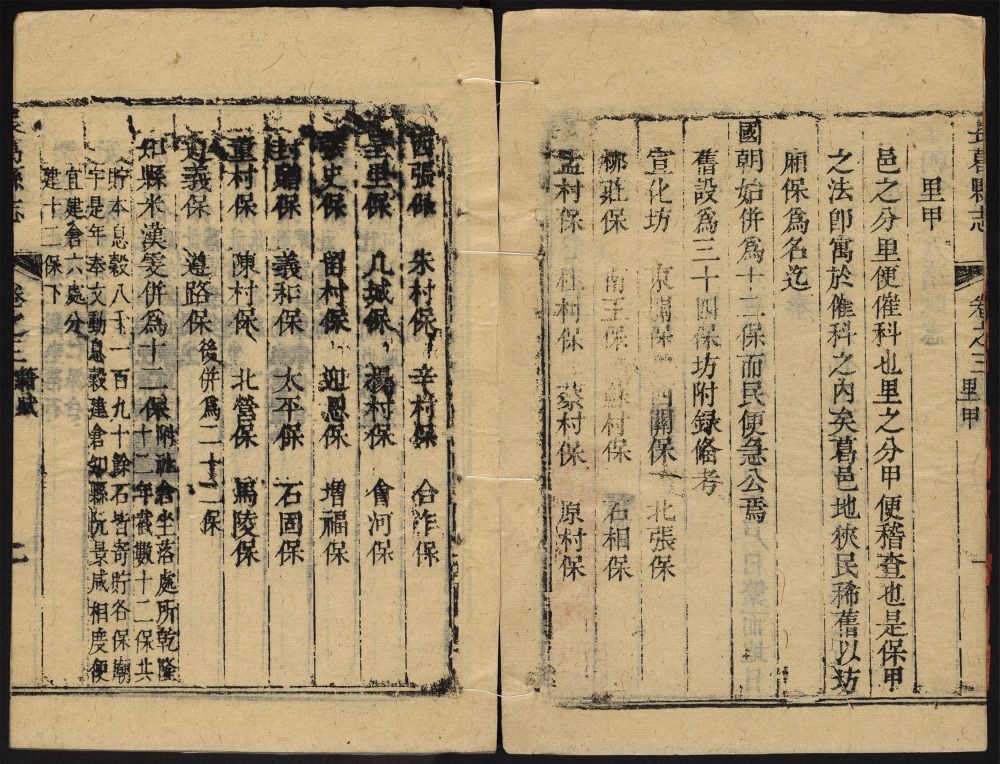 長葛縣志 卷之三 里甲 一
里甲
邑之分里便催科也里之分甲便稽查也是保甲
之法卽寓於催科之內矣葛邑地狹民稀舊以坊
廂保爲名迄
國朝始併爲十二保而民便急公焉
舊設爲三十四保坊附錄備考
宣化坊 東關保 西關保 北張保
柳莊保 南王保 蘇村保 石相保
孟村保 杜村保 蔡村保 原村保
西張保 朱村保 辛村保 合作保
里保 几城保 湯村保 會河保
史保 留村保 迎恩保 增福保
封贈保 義和保 太平保 石固保
董村保 陳村保 北營保 馬陵保
遵義保 遵路保 後併爲二十二保
知縣米漢雯併爲十二保 附社倉坐落處所乾隆
十二年截數十二保共
貯本息穀八千一百九十餘石皆寄貯各保廟
宇是年奉文動息穀建倉知縣阮景咸相度便
宜建倉六處分
建十二保下
長葛縣志 卷之三 籍賦